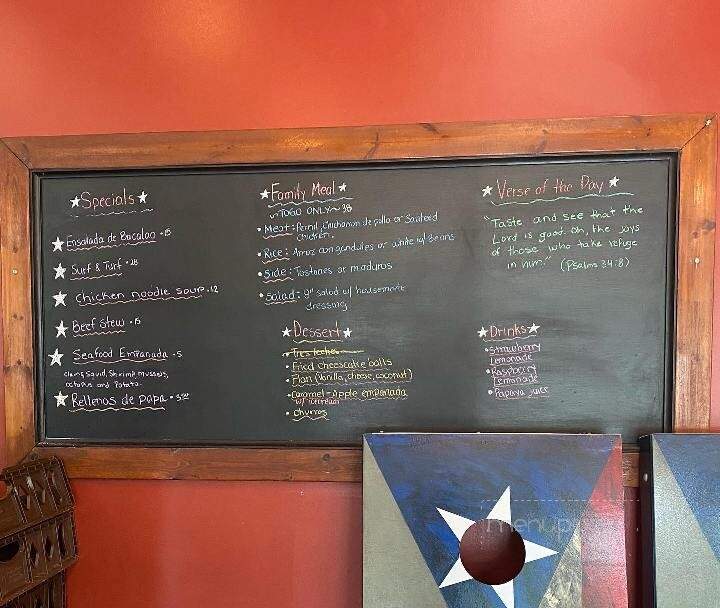 Specials
Ensalada de Bacalao • 15
Surf & Turf • 28
Chicken noodle soup • 12
Beef stew • 15
Seafood Empanada • 5
clams, squid, shrimp, mussels,
octopus and Potato.
Rellenos de papa • 5
Family Meal
~TOGO ONLY~ 38
• Meat: Pernil, Chicharron de pollo or Sauteed
Chicken.
• Rice: Arroz con gandules or white w/ Beans
• Side: Tostones or maduros
• Salad: 9" salad w/ housemade
dressing
Dessert
• Tres leches
• Fried cheesecake balls
• Flan (Vanilla, cheese, coconut)
• Caramel-Apple empanada
w/ icecream
• Churros
Verse of the Day
"Taste and see that the
Lord is good. Oh, the joys
of those who take refuge
in him."
(Psalms 34:8)
Drinks
• Strawberry
Lemonade
• Raspberry
Lemonade
• Papaya juice
menupix